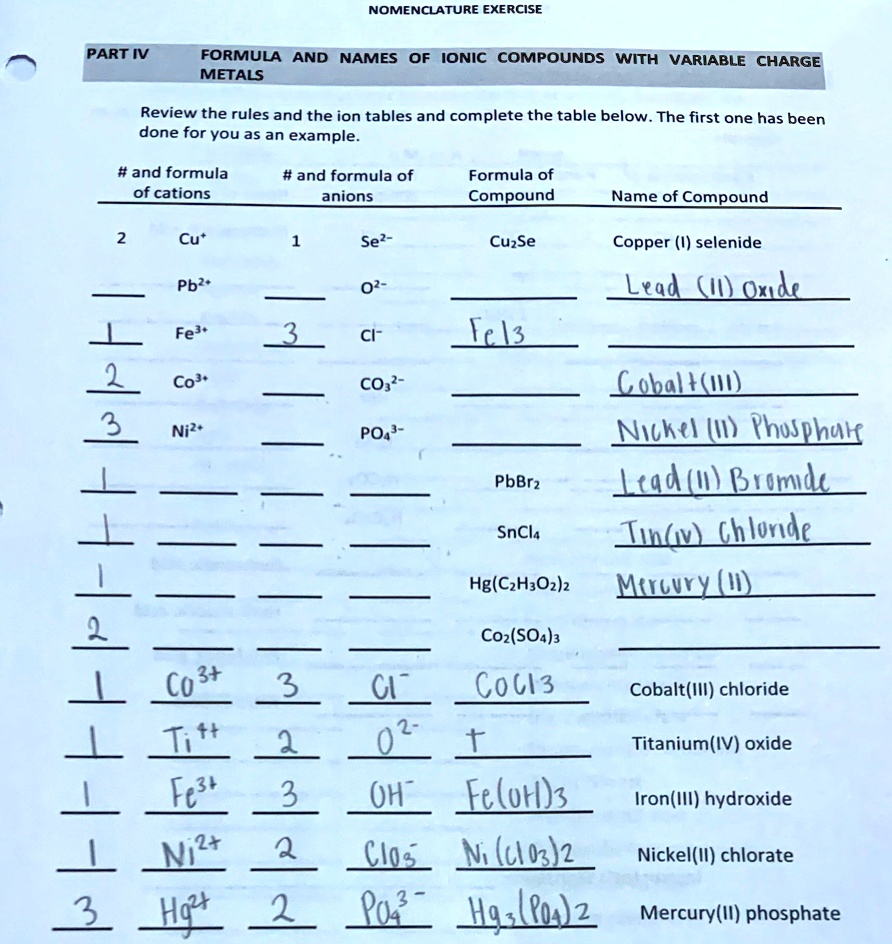 NOMENCLATURE EXERCISE
PART IV FORMULA AND NAMES OF IONIC COMPOUNDS WITH VARIABLE CHARGE
METALS
Review the rules and the ion tables and complete the table below. The first one has been
done for you as an example.
# and formula # and formula of Formula of
of cations anions Compound Name of Compound
2 Cu⁺ 1 Se²⁻ Cu₂Se Copper (I) selenide
Pb²⁺ O²⁻ Lead (II) Oxide
1 Fe³⁺ 3 Cl⁻ Fel3
2 Co³⁺ CO₃²⁻ Cobalt(III)
3 Ni²⁺ PO₄³⁻ Nickel (II) Phosphate
1 PbBr₂ Lead (II) Bromide
1 SnCl₄ Tin(IV) Chloride
1 Hg(C₂H₃O₂)₂ Mercury (II)
2 Co₂(SO₄)₃
1 Co³⁺ 3 Cl⁻ CoCl3 Cobalt(III) chloride
1 Ti⁴⁺ 2 O²⁻ t Titanium(IV) oxide
1 Fe³⁺ 3 OH⁻ Fe(OH)3 Iron(III) hydroxide
1 Ni²⁺ 2 ClO₃⁻ Ni(ClO3)2 Nickel(II) chlorate
3 Hg²⁺ 2 PO₄³⁻ Hg₃(PO₄)2 Mercury(II) phosphate